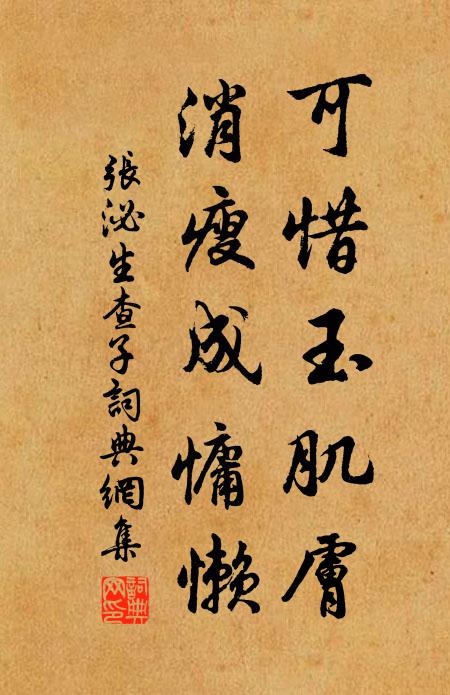 可惜玉肌膚
消瘦成慵懶
張泌生查子詞典網集
詞典
网印